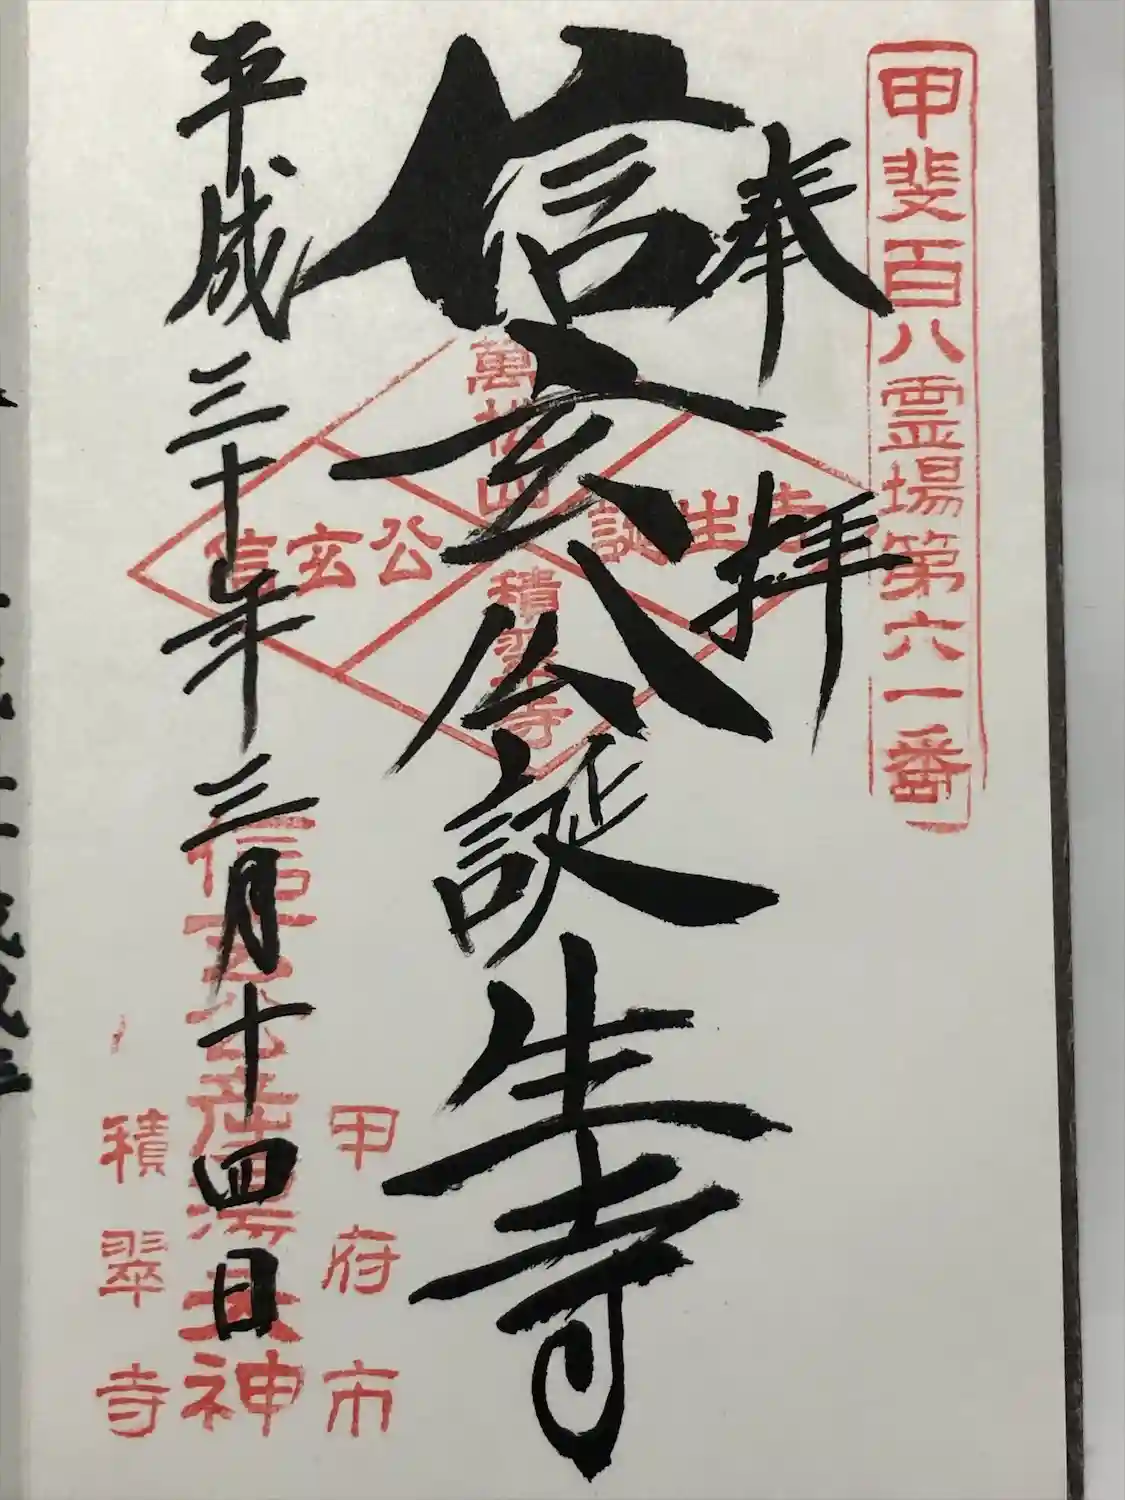 甲斐百八霊場第六一番
奉拝
信玄公誕生寺
萬松山
信玄公
誕生寺
積翠寺
平成三十年三月十四日
甲府市
信玄公産湯天神
積翠寺